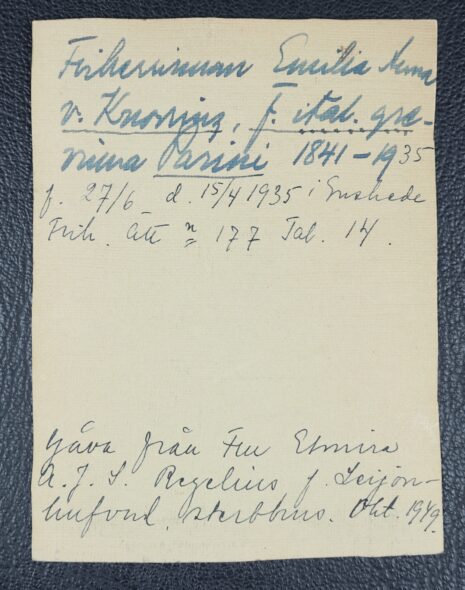 Friherrinnan Emilia Anna
v. Knorring, f. ital. gre-
vinna Parisi 1841-1935
f. 27/6 d. 15/4 1935 i Enskede
Frih. ätt n 177 Tab. 14.
Gåva från Fru Elmira
A. J. S. Regelius f. Leijon-
hufvud, sterbhus. Okt. 1949.